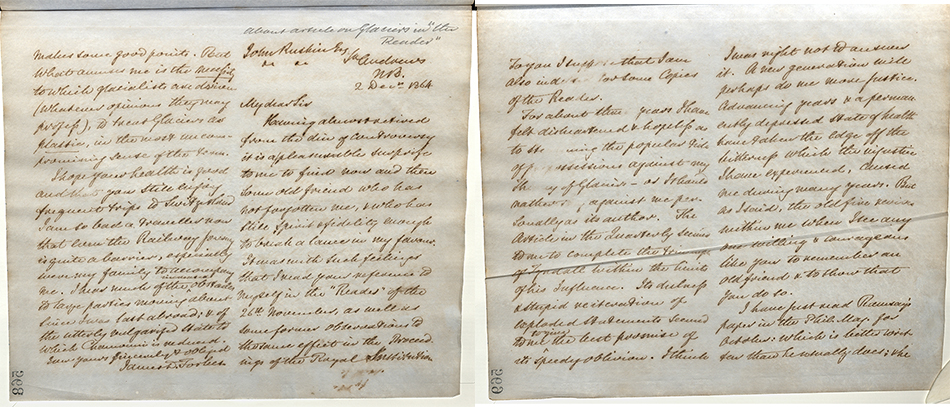 about article on Glaciers in "the
Reader"
John Ruskin Esq
St Andrews
N.B.
2 Decr 1864
My dear Sir
Having almost retired
from the din of controversy
it is a pleasurable surprise
to me to find now and then
some old friend who has
not forgotten me, & who has
still spirit & fidelity enough
to break a lance in my favour.
It was with such feelings
that I read your reference to
myself in the "Reader" of the
26th November, as well as
some former observations to
the same effect in the Proceed-
ings of the Royal Institution
To you I suppose that I am
also indebted for some Copies
of the Reader.
For about three years I have
felt disheartened & hopeless as
to stemming the popular tide
of against my
Theory of Glaciers – as I should
rather say, against me per-
sonally as its author. The
Article in the Quarterly seems
to me to complete the
of Tyndall within the limits
of his Influence. Its dulness
& stupid reiteration of
exploded statements seemed
to me to give the best promise of
its speedy oblivion. I think
I was right not to answer
it. A new generation will
perhaps do me more justice.
Advancing years & a perman-
ently depressed state of health
have taken the edge off the
bitterness which the injustice
I have experienced, caused
me during many years. But
as I said, the old fire revives
within me when I see any
one willing & courageous
like you to remember an
old friend & to show that
you do so.
I have just read Ramsay's
paper in the Phil. Mag. for
October: which is better writ-
ten than he usually does; & he
makes some good points. But
what amuses me is the necessity
to which glacialists are driven
(whatever opinions they may
profess), to treat Glaciers as
plastic, in the most uncom-
promising sense of the term.
I hope your health is good
and that you still enjoy
frequent trips to Switzerland
I am so bad a traveller now
that even the Railway journey
is quite a barrier, especially
were my family to accompany
me. I hear much of the obstacles
to large parties moving about
since I was last abroad; & of
the utterly vulgarised state to
which Chamouni is reduced.
I am yours sincerely & obliged
James D. Forbes
268
269